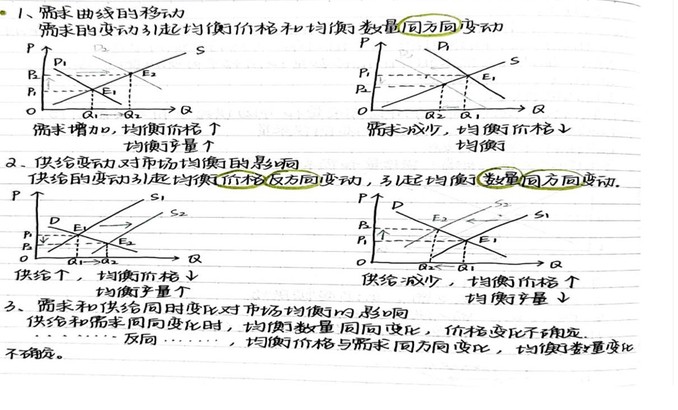 1、需求曲线的移动
需求的变动引起均衡价格和均衡数量同方向变动
P D1 D2 S
P2 E2
P1 E1
O Q1→Q2 Q
P D1 S
P1 E1
P2
O Q2 Q1 Q
需求增加,均衡价格↑
均衡产量↑
需求减少,均衡价格↓
均衡
2、供给变动对市场均衡的影响
供给的变动引起均衡价格反方向变动,引起均衡数量同方向变动.
P S1
D S2
P1 E1
P2 E2
O Q1→Q2 Q
P D S2
S1
P2 E2
P1 E1
O Q2←Q1 Q
供给↑,均衡价格↓
均衡产量↑
供给减少,均衡价格↑
均衡产量↓
3、需求和供给同时变化对市场均衡的影响
供给和需求同向变化时,均衡数量同向变化,价格变化不确定.
········反向·······,均衡价格与需求同方向变化,均衡数量变化
不确定。